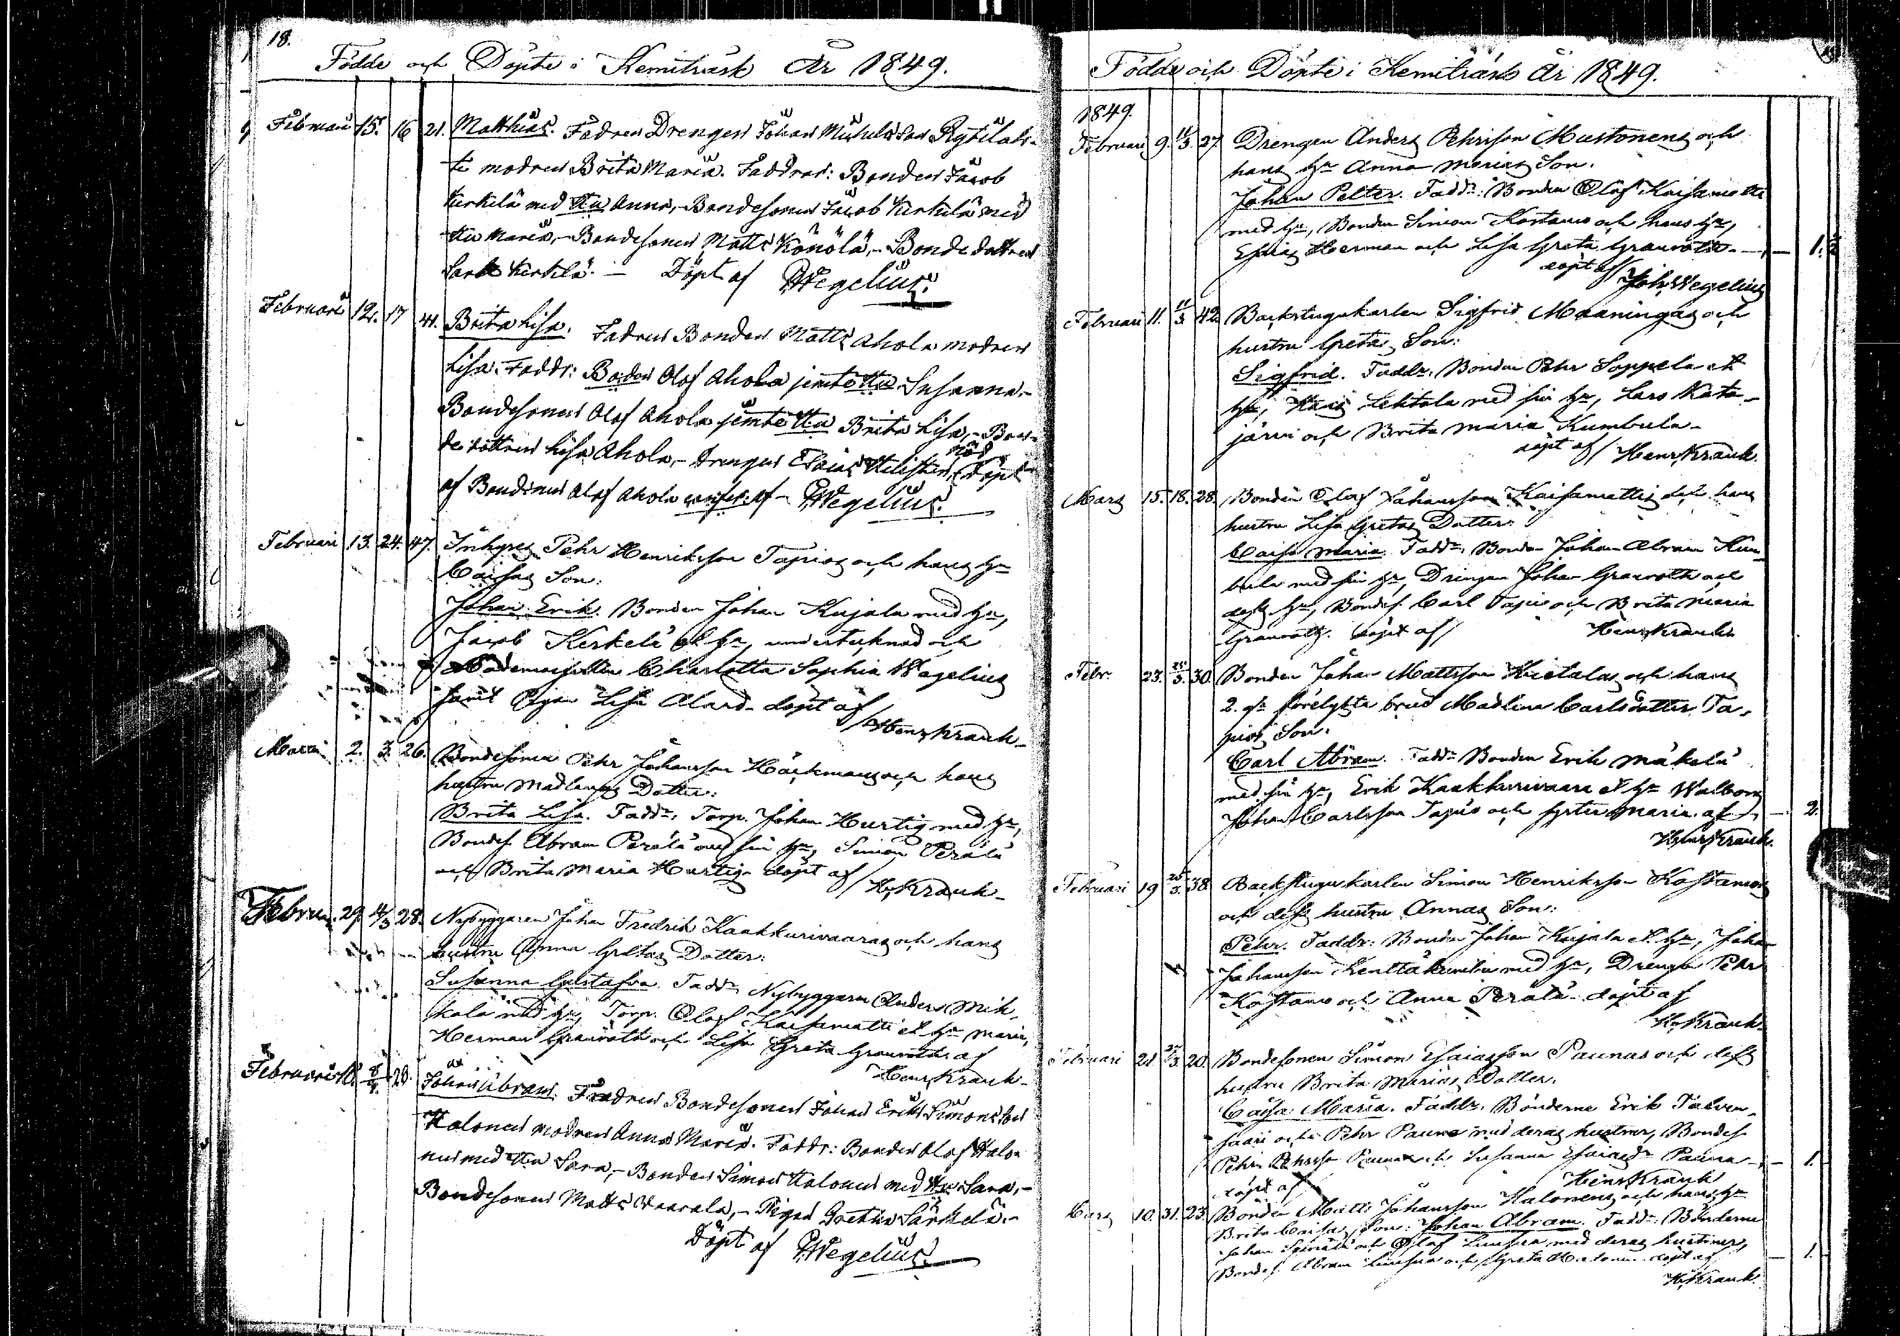 18.
Födde och Döpte i Kemiträsk År 1849.
Februari 15. 16 21. Matthias. Fadren Drengen Johan Michelsson
modren Brita Maria. Faddrar: Bonden Jacob
Kerkelä med Hu Anna,- Bondesonen Jacob Kerkelä med
Hu Maria,- Bondesonen Matts Könölä,- Bonde dottren
Kerkelä. — Döpt af Wegelius.
Februari 12. 17 41. Brita Lisa. Fadren Bonden Matts Ahola modren
Lisa. Faddr: Bonden Olof Ahola jemte Hu Susanna.-
Bondesonen Olof Ahola jemte Hu Brita Lisa,- Bon-
de dottren Lisa Ahola,- Drengen Esaias
af Bondesonen Olof Ahola af - Wegelius.
Februari 13. 24. 47. Inhyses Pehr Henriksson Tapios och hans Hu
Caisas Son:
Johan Erik. Bonden Johan Kujala med Hu,
Jacob Kerkelä et Hu, undertecknad och
Mademoiselle Charlotta Sophia Wegelius
samt Pigan Lisa Alard. döpt af
Henr. Krank.
2. 3. 26. Bondesonen Pehr Johansson Häckmans och hans
hustru Madlenas Dotter:
Brita Lisa. Fadd: Torp. Johan Hurtig med Hu,
Bondes. Abram Perälä med sin Hu, Simon Perälä
och Brita Maria Hurtig. döpt af
H. Krank.
29. 4/3 28. Nybyggaren Johan Fredrik Kaakkurivaaras och hans
hustru Anna Gretas Dotter:
Susanna Gustafva. Fadd: Nybyggaren Anders Mik-
kola med Hu, Torp. Olof Kaisamatti et Hu Maria,
Herman Granroth och Lisa Greta Granroth af
Henr. Krank.
Februari 20. Johan Abram. Fadren Bondesonen Johan Eriks Simonsson
Halonen modren Anna Maria. Faddr: Bonden Olof Halo-
nen med Hu Sara,- Bonden Simon Halonen med Hu Sara,-
Bondesonen Matts Waarala,- Pigan Greta Särkelä.-
Döpt af Wegelius.
Födde och Döpte i Kemiträsk År 1849.
1849.
Februari 9. 11/3. 27. Drengen Anders Pehrsson Mustonens och
hans Hu Anna Marias Son.
Johan Petter. Fadd: Bonden Olof Kaisamatti
med Hu, Bonden Simon Kostamo och hans Hu,
Esaias Herman och Lisa Greta Granroth. — 1.
döpt af Joh. Wegelius
Februari 11. 11/3. 42. Backstugukarlen Sigfrid Maaningas och
hustru Gretas Son:
Sigfrid. Faddr. Bonden Pehr Soppela et
Hu, Lehtola med sin Hu, Lars Kata-
järvi och Brita Maria Kumbula.
döpt af Henr. Krank.
Mars 15. 18. 28. Bonden Olof Johansson Kaisamattis och hans
hustru Lisa Gretas Dotter:
Caisa Maria. Fadd: Bonden Johan Abram Kum-
bula med sin Hu, Drengen Johan Granroth och
dess Hu, Bondes. Carl Tapio och Brita Maria
Granroth. döpt af Henr. Krank.
Febr. 23. 25/3. 30. Bonden Johan Mattsson Hietalas och hans
2. förelskta brud Madlena Carlsdotter Ta-
pios Son.
Carl Abram. Fadd: Bonden Erik Mäkelä
med sin Hu, Erik Kaakkurivaara et Hu Walborg,
Johan Carlsson Tapio och Maria af — 2.
Henr. Krank.
Februari 19 25/3. 38. Backstugukarlen Simon Henriksson Kostamos
och dess hustru Annas Son:
Pehr. Faddr: Bonden Johan Kujala et Hu, Johan
Johansson med Hu, Drengen Pehr
Kostamo och Anna Perälä. döpt af
H. Krank.
Februari 21 27/3. 20. Bondesonen Simon Esaiasson Paunas och dess
hustru Brita Marias Dotter.
Caisa Maria. Faddr. Bönderne Erik Talven-
saari och Pehr Pauna med deras hustrur, Bondes.
Pehr Pehrsson Pauna och Susanna Esaiasdr Pauna — 1.
döpt af Henr. Krank
Mars 10. 31. 23. Bonden Matts Johansson Halonens och hans Hu
Brita Caisas Son: Johan Abram. Fadd: Bönderne
Johan och Olof med deras hustrur,
Bondes. Abram och Greta Halonen. döpt af — 1.
H. Krank.